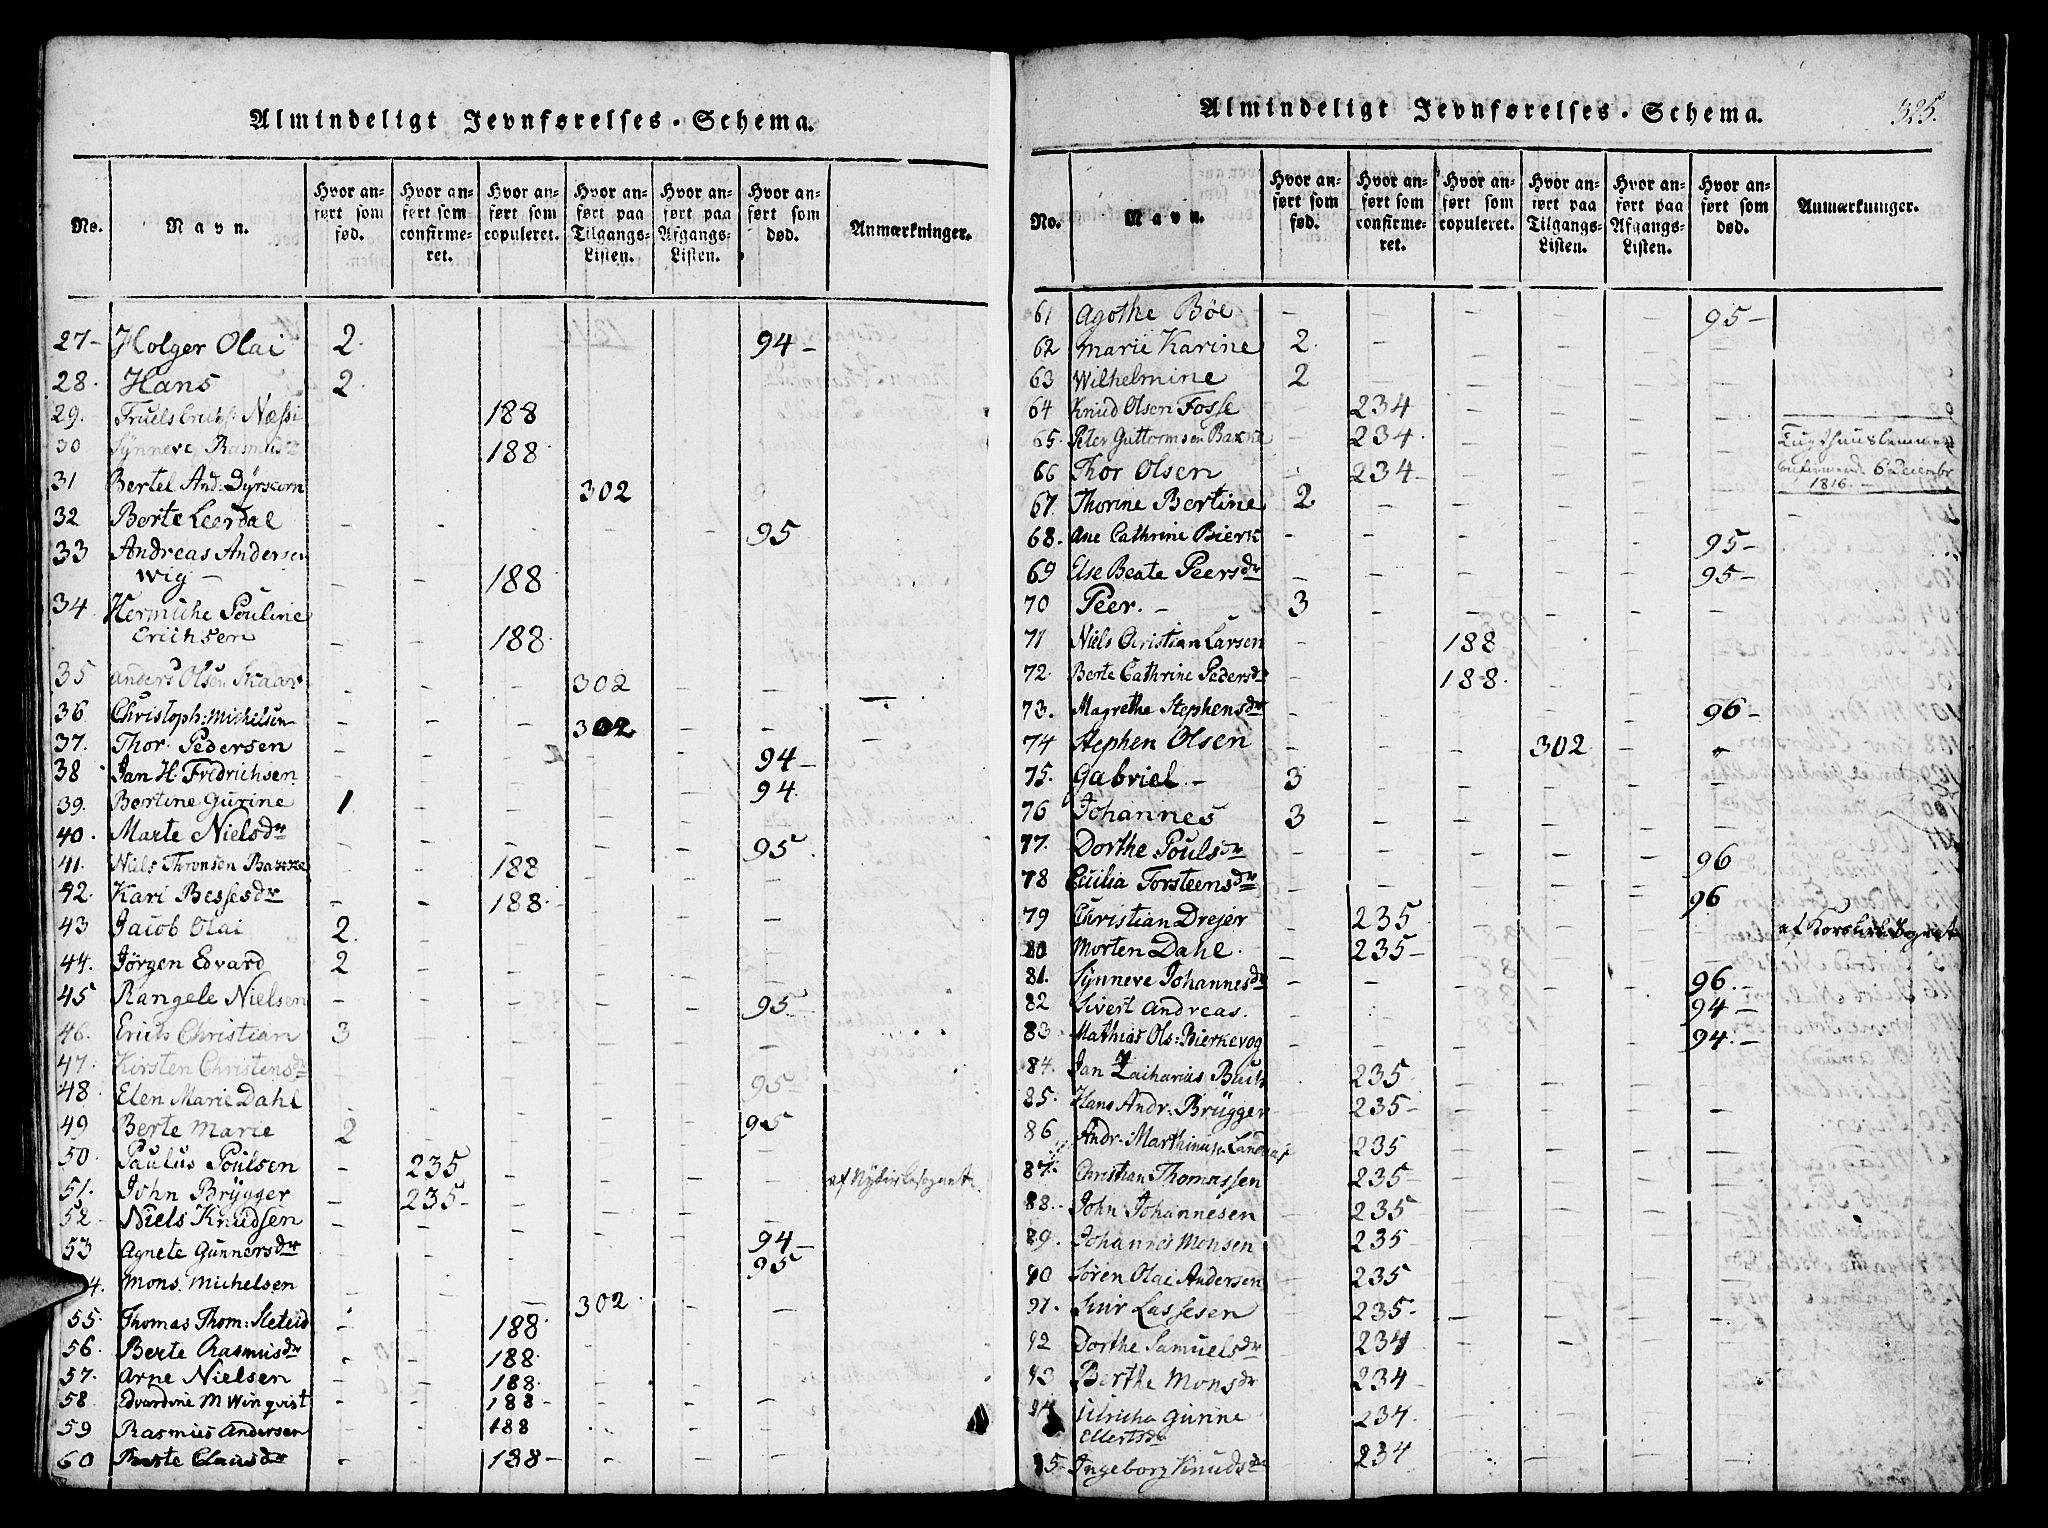 Almindeligt Jevnførelses-Schema.
No. Navn. Hvor anført som fød. Hvor anført som confirmeret. Hvor anført som copuleret. Hvor anført paa Tilgangs-Listen. Hvor anført paa Afgangs-Listen. Hvor anført som død. Anmærkninger.
27- Holger Olai 2. 94-
28. Hans 2.
29. 188
30 Synneve Rasmusdr 188.
31 Bertel And: Dyrscorn 302
32 Berte Leerdal 95
33 Andreas Andersen
Wig- 188
34 Hermiche Pouline
Erichsen 188.
35 Anders Olsen Skaar 302
36 Christoph: Michelsen 302
37. Thor. Pedersen 94-
38 Jan H. Fredrichsen 94.
39. Bertine Gurine 1.
40. Marte Nielsdr 95.
41. Niels Thronsen Bakke 188
42. Kari Bessesdr 188.
43 Jacob Olai 2.
44. Jörgen Edvard 2
45 Rangele Nielsen 95
46. Erich Christian 3
47. Kirsten Christensdr 95-
48. Elen Marie Dahl 95
49 Berte Marie 2
50. Paulus Poulsen 235
51. John Brügger 235- af Nykirkesognet
52 Niels Knudsen 94-
53 Agnete Gunnersdr 95
4. Mons. Michelsen 302.
55. Thomas Thom: 188.
56. Berte Rasmusdr 188.
57. Arne Nielsen 188.
58 Edvardine M Winqvist 188-
59 Rasmus Andersen 188
60 Berte Clausdr 188-
Almindeligt Jevnførelses-Schema. 325.
No. Navn. Hvor anført som fød. Hvor anført som confirmeret. Hvor anført som copuleret. Hvor anført paa Tilgangs-Listen. Hvor anført paa Afgangs-Listen. Hvor anført som død. Anmærkninger.
61 Agothe Böe 95-
62 Marie Karine 2.
63 Wilhelmine 2
64 Knud Olsen Fosse 234
65. Peter Guttormsen Bakke 234. Tugthuuslemmer
66 Thor Olsen 234- confirmerede 6 Decembr
1816.-
67. Thorine Bertine 2
68. Ane Cathrine Bierk 95-
69 Else Beate Peersdr 95-
70 Peer.- 3
71 Niels Christian Larsen 188
72. Berte Cathrine Pedersdr 188.
73. Magrethe Stephensdr 96-
74 Stephen Olsen 302
75. Gabriel- 3
76 Johannes 3
77. Dorthe Poulsdr 96
78 Cecilia Torsteensdr 96
79 Christian Drejer 235. af Korskirk Sognet
80 Morten Dahl. 235-
81. Synneve Johannesdr 96.-
82 Sivert Andreas. 94-
83. Mathias Ols: Bierkevog 94.-
84. Jan Zacharius Buch 235
85. Hans Andr: Brügger 235-
86 Andr: Marthinus 235
87. Christian Thomassen 235-
88.. John Johannesen 235
89. Johannes Monsen 235-
90 Sören Olai Andersen 235
91. Lassesen 235-
92 Dorthe Samuelsdr 234
93 Berthe Monsdr 234-
94 Ulricha Gurine 234.
Ellertsdr
95- Ingeborg Knudsdr 234